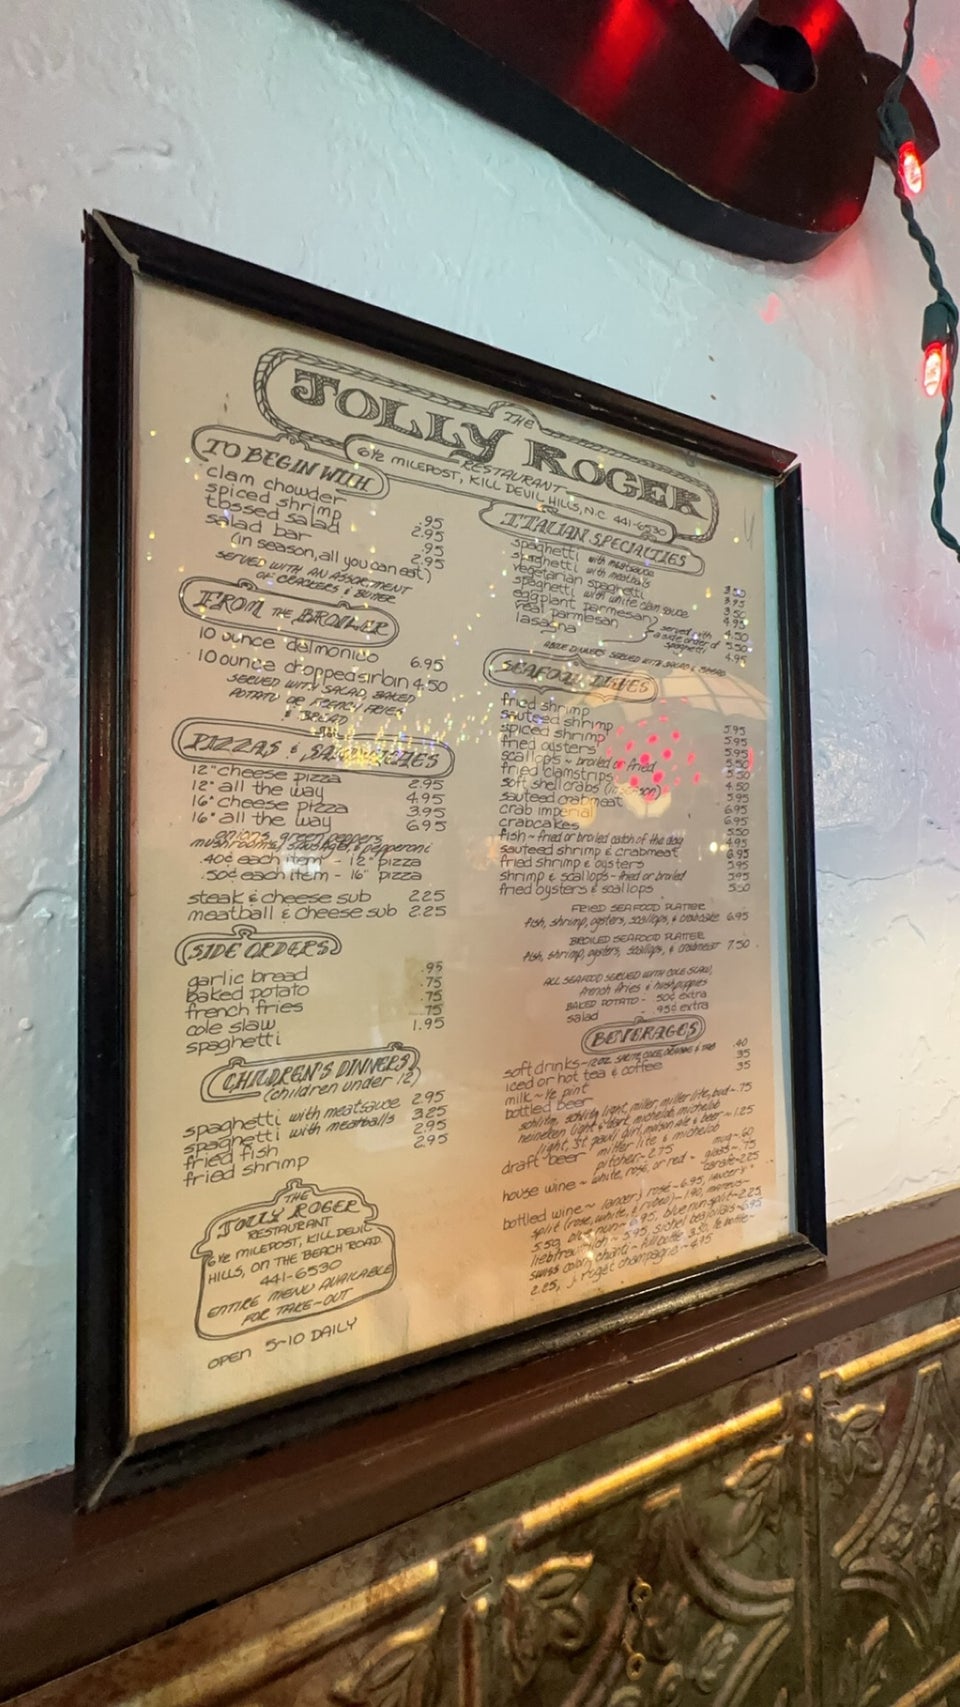 THE
JOLLY ROGER
RESTAURANT
6½ MILEPOST, KILL DEVIL HILLS, N.C. 441-6530
TO BEGIN WITH
clam chowder .95
spiced shrimp 2.95
tossed salad .95
salad bar 2.95
(in season, all you can eat)
SERVED WITH AN ASSORTMENT
OF CRACKERS & BUTTER
FROM THE BROILER
10 ounce delmonico 6.95
10 ounce chopped sirloin 4.50
SERVED WITH SALAD, BAKED
POTATO OR FRENCH FRIES
& BREAD
PIZZAS & SANDWICHES
12" cheese pizza 2.95
12" all the way 4.95
16" cheese pizza 3.95
16" all the way 6.95
onions, green peppers
mushrooms, sausage, & pepperoni
.40¢ each item - 12" pizza
.50¢ each item - 16" pizza
steak & cheese sub 2.25
meatball & cheese sub 2.25
SIDE ORDERS
garlic bread .95
baked potato .75
french fries .75
cole slaw .75
spaghetti 1.95
CHILDREN'S DINNERS
(children under 12)
spaghetti with meatsauce 2.95
spaghetti with meatballs 3.25
fried fish 2.95
fried shrimp 2.95
THE
JOLLY ROGER
RESTAURANT
6½ MILEPOST, KILL DEVIL
HILLS, ON THE BEACH ROAD
441-6530
ENTIRE MENU AVAILABLE
FOR TAKE-OUT
OPEN 5-10 DAILY
ITALIAN SPECIALTIES
spaghetti with meatsauce
spaghetti with meatballs 3.95
vegetarian spaghetti
spaghetti with white clam sauce 4.95
eggplant parmesan 4.50
veal parmesan 5.50
served with
a side order of
spaghetti
lasagna 4.95
ABOVE DINNERS SERVED WITH SALAD & BREAD
SEAFOOD
fried shrimp 5.95
sauteed shrimp 5.95
spiced shrimp 5.95
fried oysters 5.50
scallops ~ broiled or fried 5.50
fried clamstrips 4.50
soft shell crabs (in season) 5.95
sauteed crabmeat 6.95
crab imperial 6.95
crabcakes 5.50
fish ~ fried or broiled catch of the day
sauteed shrimp & crabmeat 6.95
fried shrimp & oysters 5.95
shrimp & scallops - fried or broiled 5.95
fried oysters & scallops 5.50
FRIED SEAFOOD PLATTER
fish, shrimp, oysters, scallops, & crabcake 6.95
BROILED SEAFOOD PLATTER
fish, shrimp, oysters, scallops, & crabmeat 7.50
ALL SEAFOOD SERVED WITH COLE SLAW,
french fries & hushpuppies
BAKED POTATO - .50¢ extra
salad - .95¢ extra
BEVERAGES
soft drinks - 12 OZ. SPRITE, COKE, ORANGE & TAB .40
iced or hot tea & coffee 35
milk ~ ½ pint 35
bottled beer
schlitz, schlitz light, miller, miller lite, bud ~ .75
heineken light & dark, michelob, michelob
light, st. pauli girl, ale & beer ~ 1.25
draft beer miller lite & michelob
pitcher ~ 2.75 mug ~ .60
house wine ~ white, rosé, or red ~ glass ~ .75
carafe 2.25
bottled wine ~ lancers rosé ~ 6.95, lancers
split (rosé, white, & rubeo) ~ 1.90,
5.50, blue nun ~ 6.95, blue nun split ~ 2.25
liebfraumilch ~ 5.95, sichel beaujolais ~ 6.95
swiss colony chianti ~ full bottle 3.50, ½ bottle ~
2.25, j. roget champagne ~ 4.95